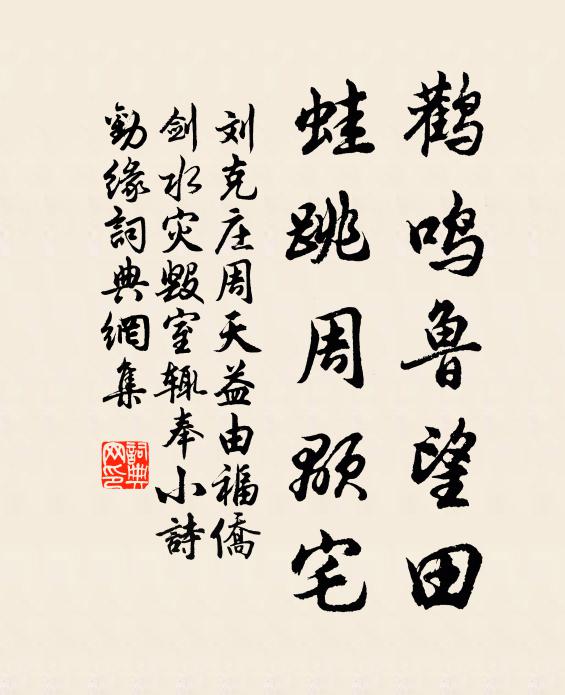 鹳鸣鲁望田
蛙跳周颙宅
刘克庄周天益由福侨
剑水灾毁室辄奉小詩
劝缘詞典網集
詞典网印